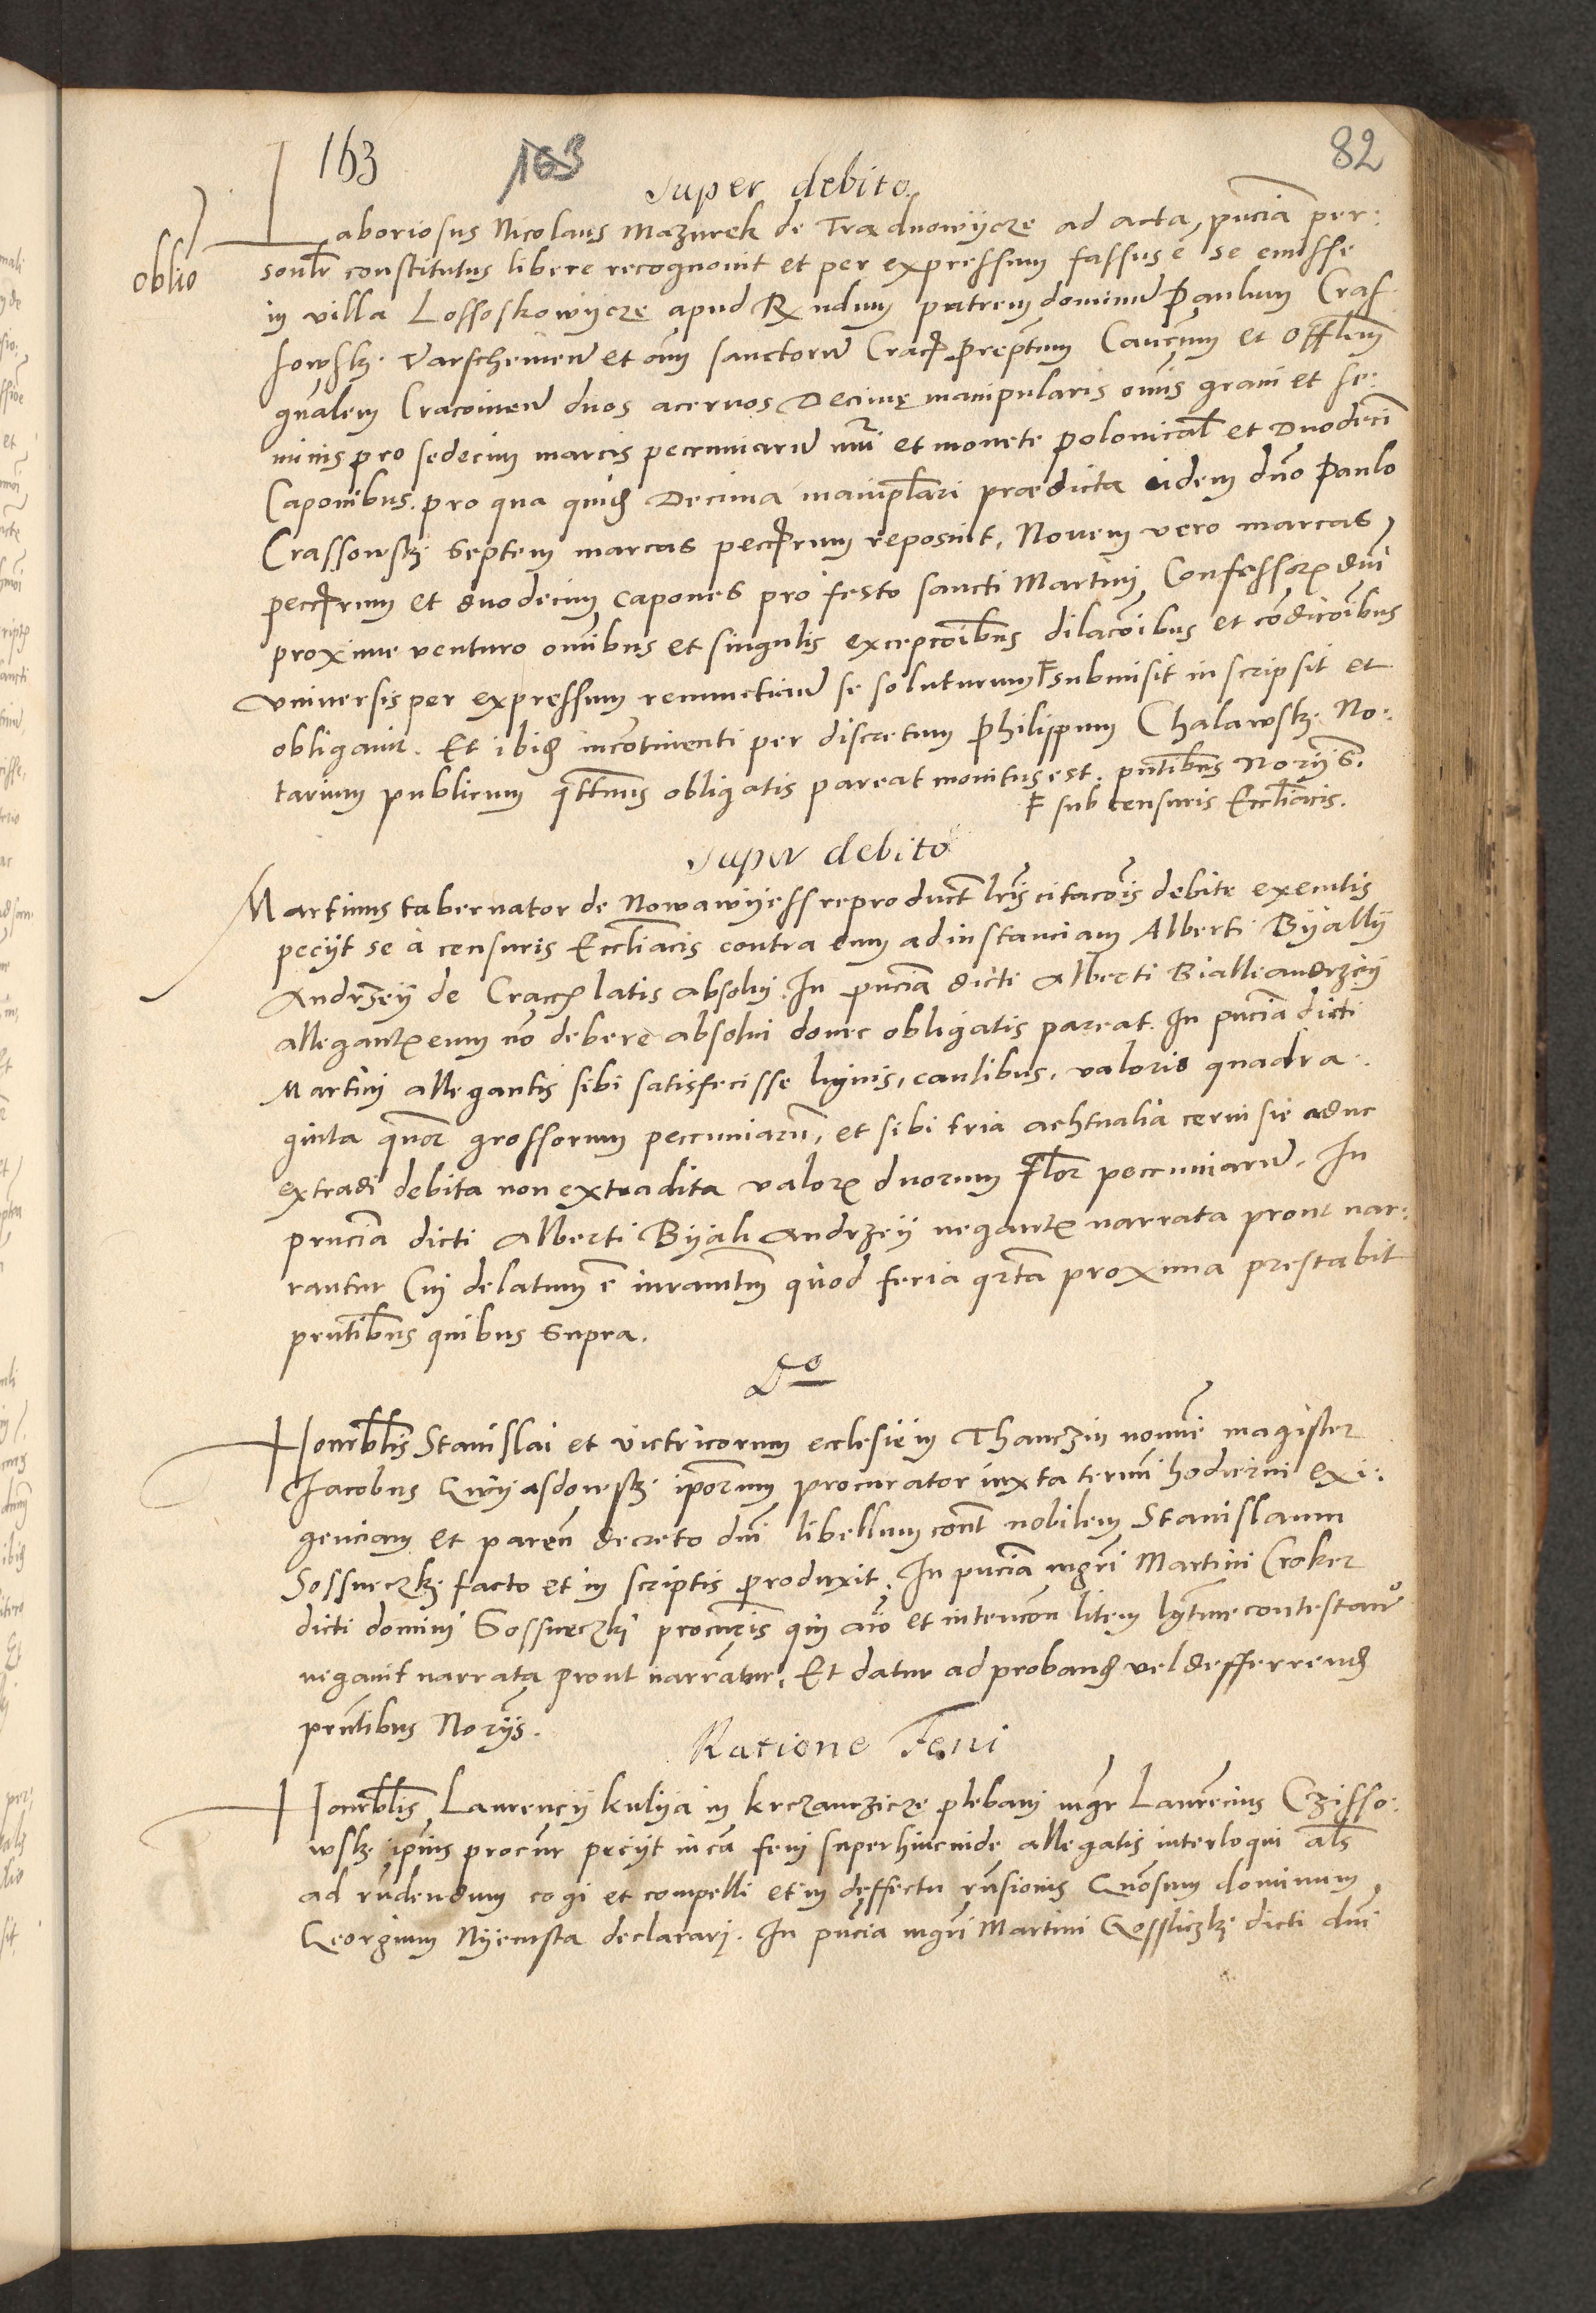 163 163 82
Super debito
oblio
Laboriosus Nicolaus Mazurek de Tradnowijcze ad acta, pnciā per:
sonlr constitutus libere recognouit et per expressum fassus ē se emisse
in villa Lossoskowijcze apud Rndum patrem dominū Paulum Cras
sowsk. Varschewien et oīm sanctorū Crac prepītum Cancrum et Offlem
gnālem Cracovien duos aceruos Decimę manipularis omīs grani et se:
minis pro sedecim marcis pecuniarū nūi et monete polonical et Duodecī
Caponibus. pro qua quid Decima maniplari prædicta eidem dno Paulo
Crassowsk. Septem marcas peccrum reposuit, Nouem vero marcas
peccrum et duodecim capones pro festo sancti Martini Confessor dnī
proxime venturo omībus et singulis excepcōibus dilacōibus et condicōibus
vniuersis per expressum renuncciau se soluturum F submisit inscripsit et
obligauit. Et ibid incontinenti per discretum Philippum Chalawsk. No:
tarium publicum qttnus obligatis pareat monitus est. pntibus Norijs.
F sub censuris Ecclīacis.
Super debito
Martinus tabernator de Nowawijess reproduct lrīs citacōis debite executis
peciit se à censuris Ecclīacis contra eum ad instanciam Alberti Bijallij
Andrzeij de Cracc latis absolui. In pnciā dicti Alberti Bialleandrzeij
allegant eum nō debere absolui donec obligatis pareat. In pnciā dicti
Martini allegantis sibi satisfecisse lignis, caulibus, valoris quadra.
ginta quor grossorum pecuniarū, et sibi tria achtualia ceruisie aduc
extradi debita non extradita valor duorum flor pecuniarū. In
pnciā dicti Alberti Bijali Andrzeij negant narrata prout nar:
rantur Cui delatum ē iuramtm quod feria qrta proxima prestabit
pntibus quibus supra.
Do
Honrblis Stanislai et victricorum ecclesie in Thanczin nomine magister
Jacobus Gwijasdowsk. iporum procurator iuxta termi hodierni exi:
genciam et paren decreto dni libellum cont nobilem Stanislaum
Sossneczk. facto et in scriptis produxit. In pnciā mgri Martini Croker
dicti domini Sossneczki procuris qui aīo et intencōn litem lgtime contestan
negauit narrata prout narratur. Et datur ad proband vel defferrend
pntibus Norijs.
Ratione Feni
Honrblis Laurencij Kulija in Krczanczicze plebani mgr Laurencius Czisso:
wsk. ipius procur peciit in cā feni super hincinde allegatis interloqui als
ad rndendum cogi et compelli et in deffectu rnsionis Gnosum dominum
Georgium Nijemsta declarari. In pncia mgri Martini Gossliczk dicti dni